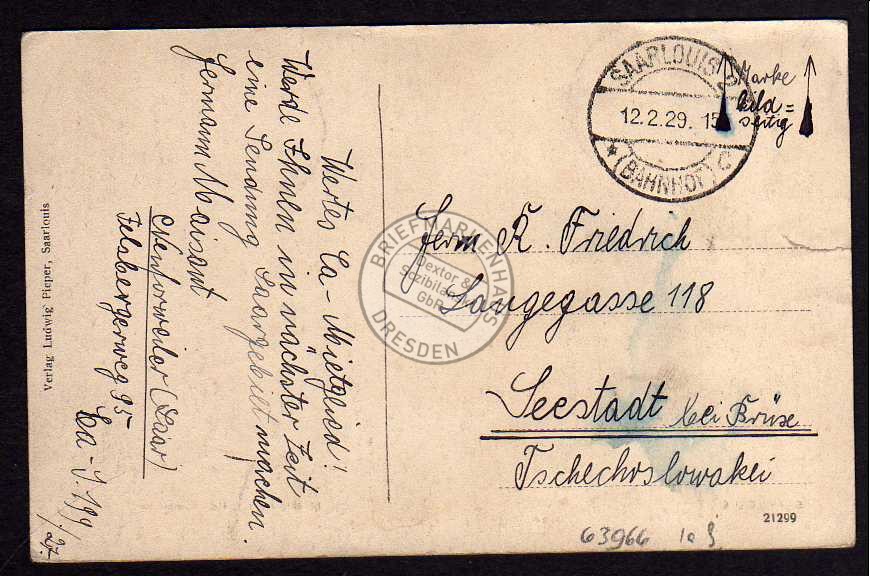 Wertes Ca-Mitglied!
Werde Ihnen in nächster Zeit
eine Sendung Saargebiet machen.
Hermann Maisant
Neuforweiler (Saar)
Felsbergerweg 95
Ca-J. 199.
Verlag Ludwig Pieper, Saarlouis
SAARLOUIS 2
12.2.29. 15
* (BAHNHOF) C
Marke
bild=
seitig
Herrn R. Friedrich
Langegasse 118
Seestadt bei Brüx
Tschechoslowakei
21299
63966
BRIEFMARKENHAUS
Dextor &
GbR
DRESDEN